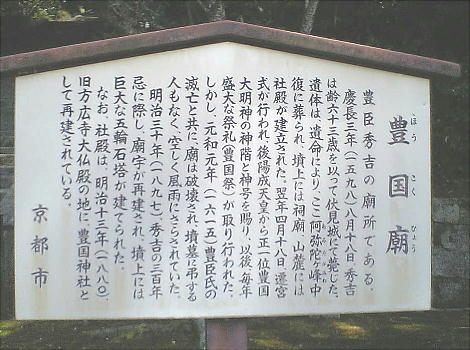 豊国廟
ほうこくびょう
豊臣秀吉の廟所である。
慶長三年(一五九八)八月十八日、秀吉
は齢六十三歳を以って伏見城にて薨じた。
遺体は、遺命により、ここ阿弥陀ヶ峰中
復に葬られ、墳上には祠廟、山麓には
社殿が建立された。翌年四月十八日、遷宮
式が行われ、後陽成天皇から正一位豊国
大明神の神階と神号を賜り、以後、毎年
盛大な祭礼(豊国祭)が取り行われた。
しかし、元和元年(一六一五)豊臣氏の
滅亡と共に、廟は破壊され、墳墓に弔する
人もなく、空しく風雨にさらされていた。
明治三十年(一八九七)、秀吉の三百年
忌に際し、廟宇が再建され、墳上には
巨大な五輪石塔が建てられた。
なお、社殿は、明治十三年(一八八〇)、
旧方広寺大仏殿の地に、豊国神社と
して再建されている。
京都市